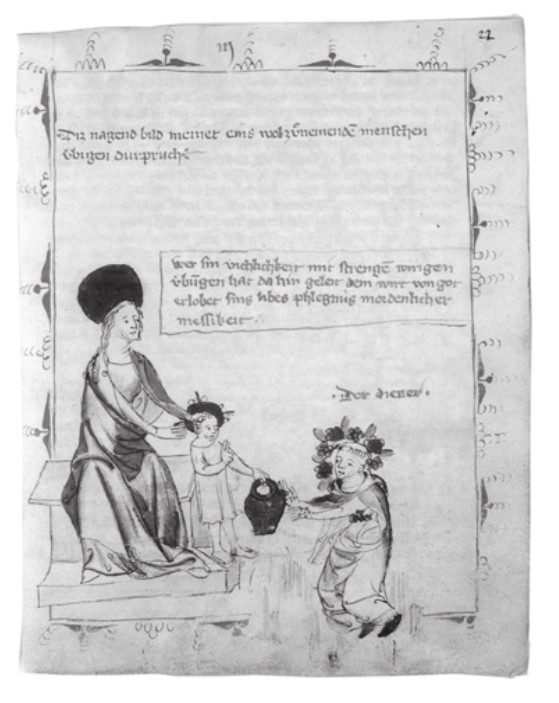 22
Diz nagend bild meinet eins wol zůnemendē menschen
v̇bigen durpruch
wer sin vichlichkeit mit strengē wirgen
v̇bu̇gen hat da hin geleit dem wirt von got
erlobet sins libes phlegnus in ordenlicher
messikeit .
· Der diener ·